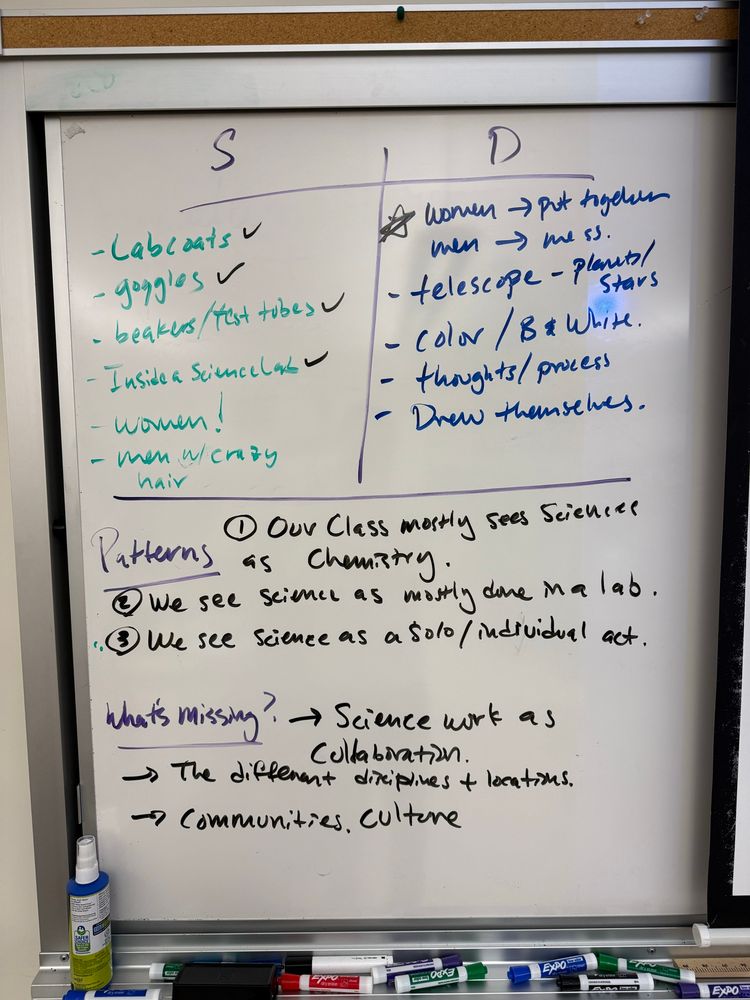 S
D
- Labcoats ✓
- goggles ✓
- beakers/Test tubes ✓
- Inside a Science Lab ✓
- women!
- men w/crazy
hair
☆ women → put together
men → mess.
- telescope - planets/
Stars
- Color / B & White.
- thoughts/process
- Drew themselves.
Patterns ① Our Class mostly sees Sciences
as Chemistry.
② We see science as mostly done in a lab.
③ We see science as a Solo/individual act.
What's missing? → Science work as
Collaboration.
→ The different disciplines + locations.
→ Communities. Culture
EXPO
EXPO
EXPO
EXPO
EXPO